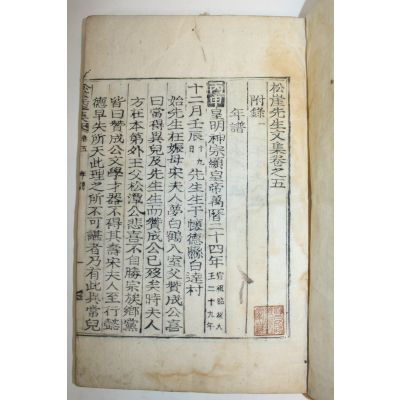 松崖先生文集卷之五
附錄
年譜
丙申皇明神宗顯皇帝萬曆二十四年宣祖昭敬大王二十九年
十二月壬辰十九日先生生于懷德縣白達村
始先生在娠母宋夫人夢白鶴入室父贊成公喜
曰當得異兒及先生生而贊成公已歿矣時夫人
方在本第外王父松潭公悲喜不自勝宗族鄉黨
皆曰贊成公文學才器不得其壽宋夫人至行懿
德早失所天此理之所不可諶者乃有此異常兒